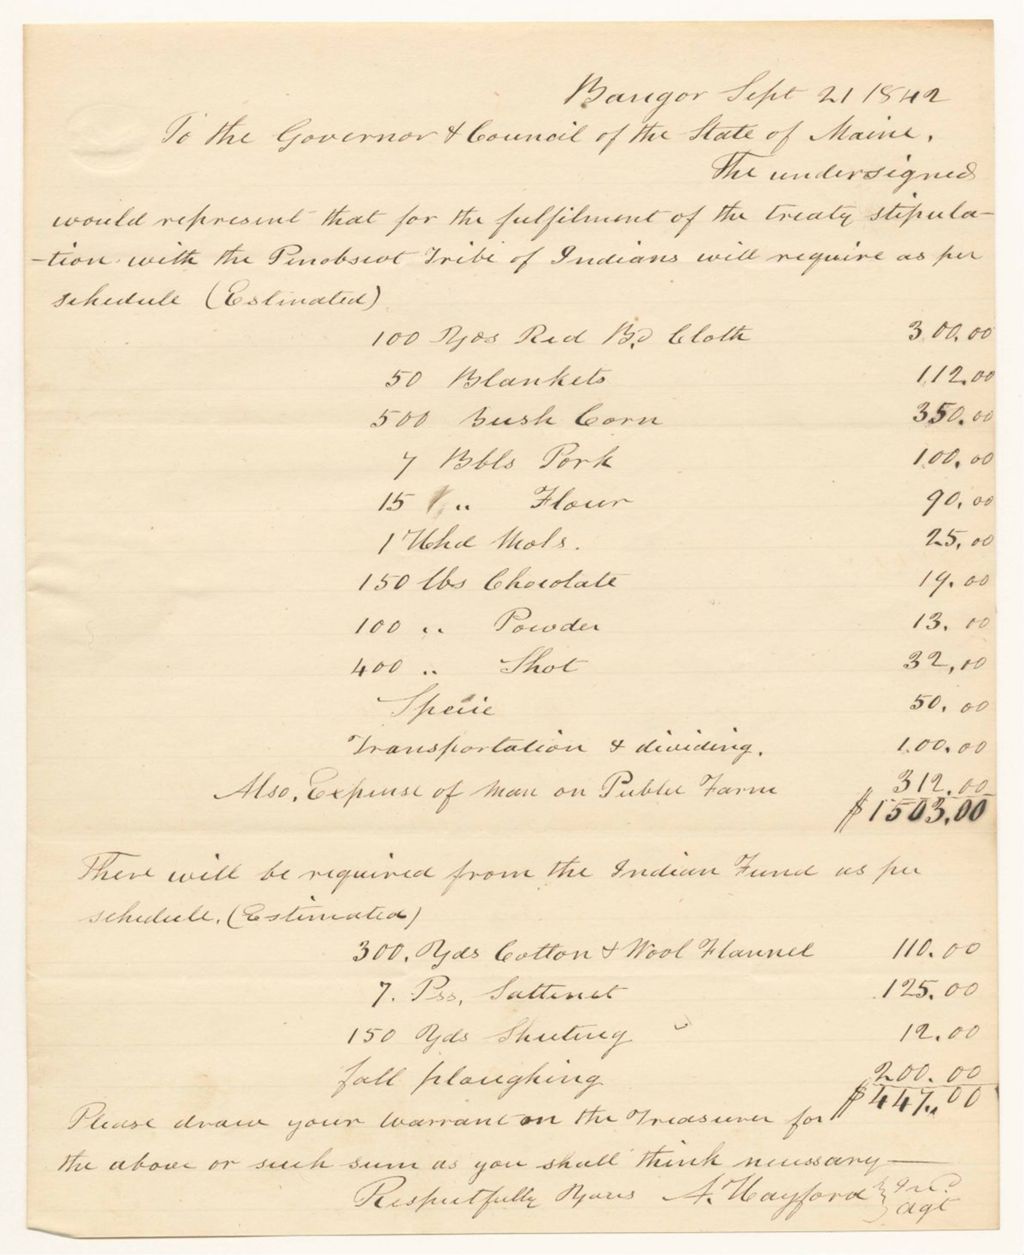 Bangor Sept 21 1842
To the Governor & Council of the State of Maine.
The undersigned
would represent that for the fulfilment of the treaty stipula-
-tion with the Penobscot Tribe of Indians will require as per
schedule (Estimated)
100 Yds Red Bd Cloth 300.00
50 Blankets 112.00
500 Bush Corn 350.00
7 Bbls Pork 100.00
15 " Flour 90.00
1 Hhd Mols. 25.00
150 lbs Chocolate 19.00
100 " Powder 13.00
400 " Shot 32.00
Specie 50.00
Transportation & dividing. 100.00
Also, Expense of Man on Public Farm 312.00
$1503.00
There will be required from the Indian Fund as per
schedule. (Estimated)
300. Yds Cotton & Wool Flannel 110.00
7. Pss, Sattinet 125.00
150 Yds Sheeting 12.00
fall ploughing 200.00
$447.00
Please draw your warrant on the Treasurer for
the above or such sum as you shall think necessary—
Respectfully Yours A. Hayford } Ind. Agt